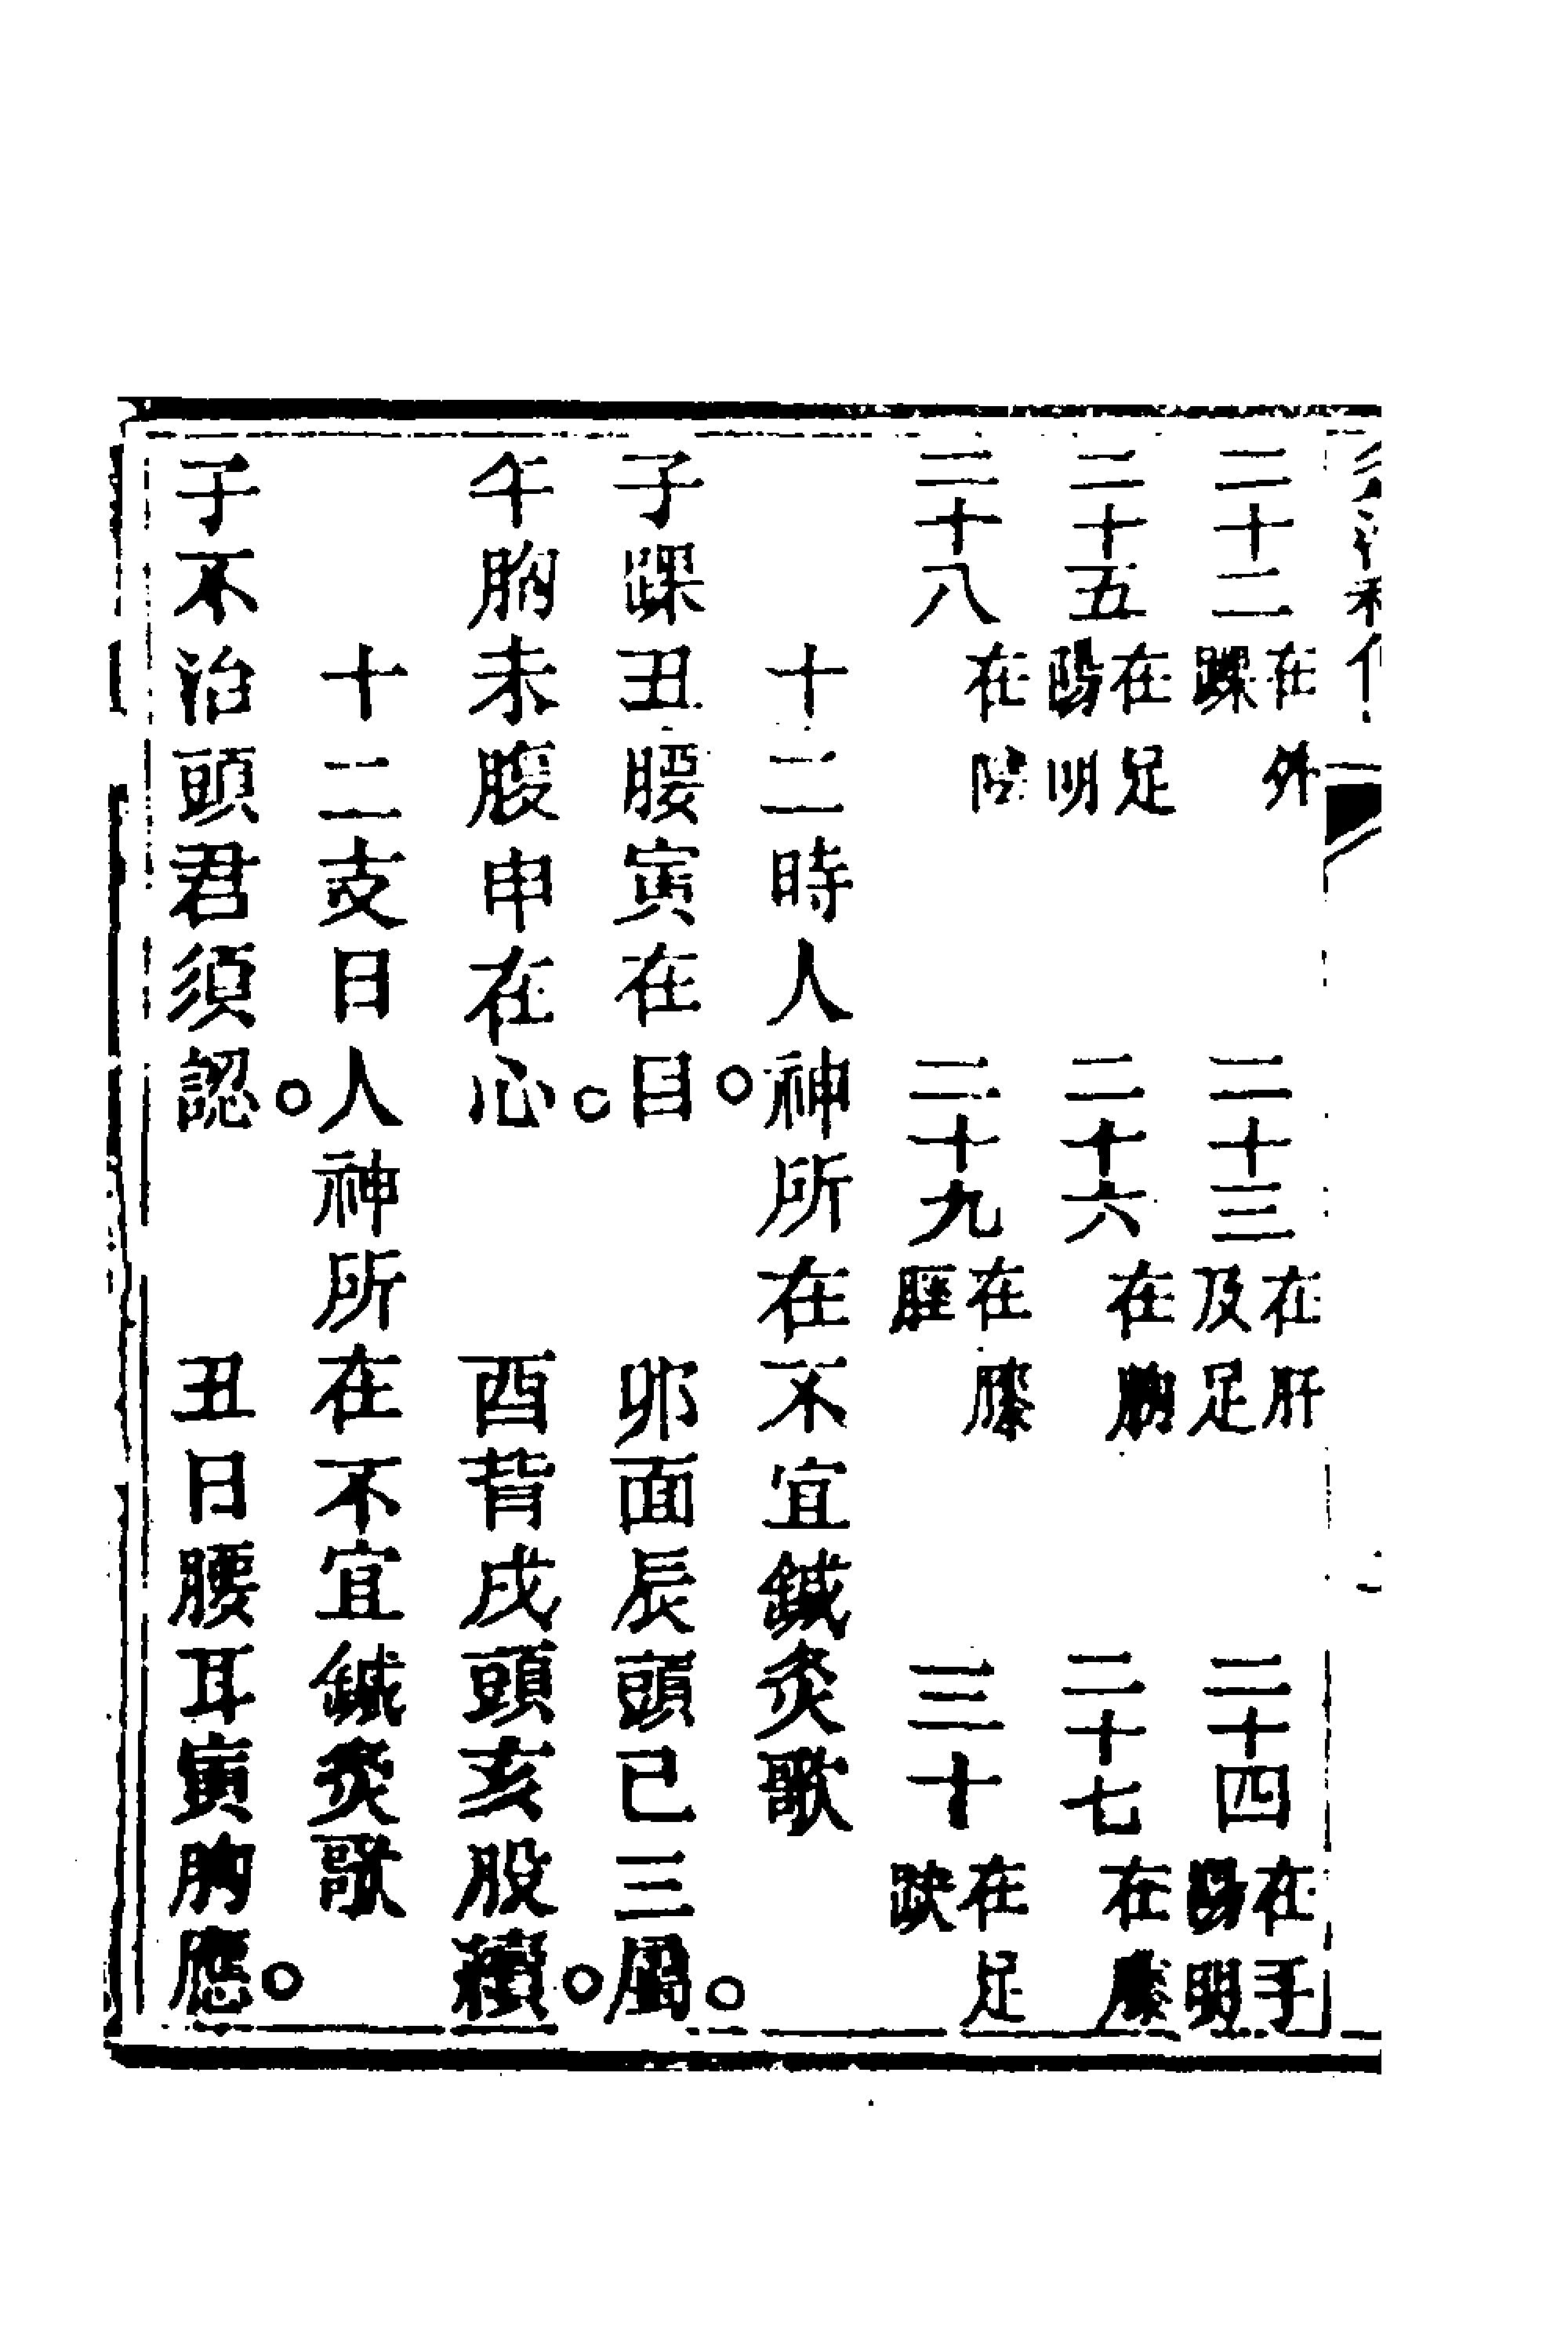 二十二在外踝　二十三在肝及足　二十四在手陽明
二十五在足陽明　二十六在胸　二十七在膝
二十八在陰　二十九在膝脛　三十在足趺
十二時人神所在不宜鍼灸歌
子踝丑腰寅在目。卯面辰頭巳三屬。
午胸未腹申在心。酉背戌頭亥股續。
十二支日人神所在不宜鍼灸歌
子不治頭君須認。丑日腰耳寅胸應。